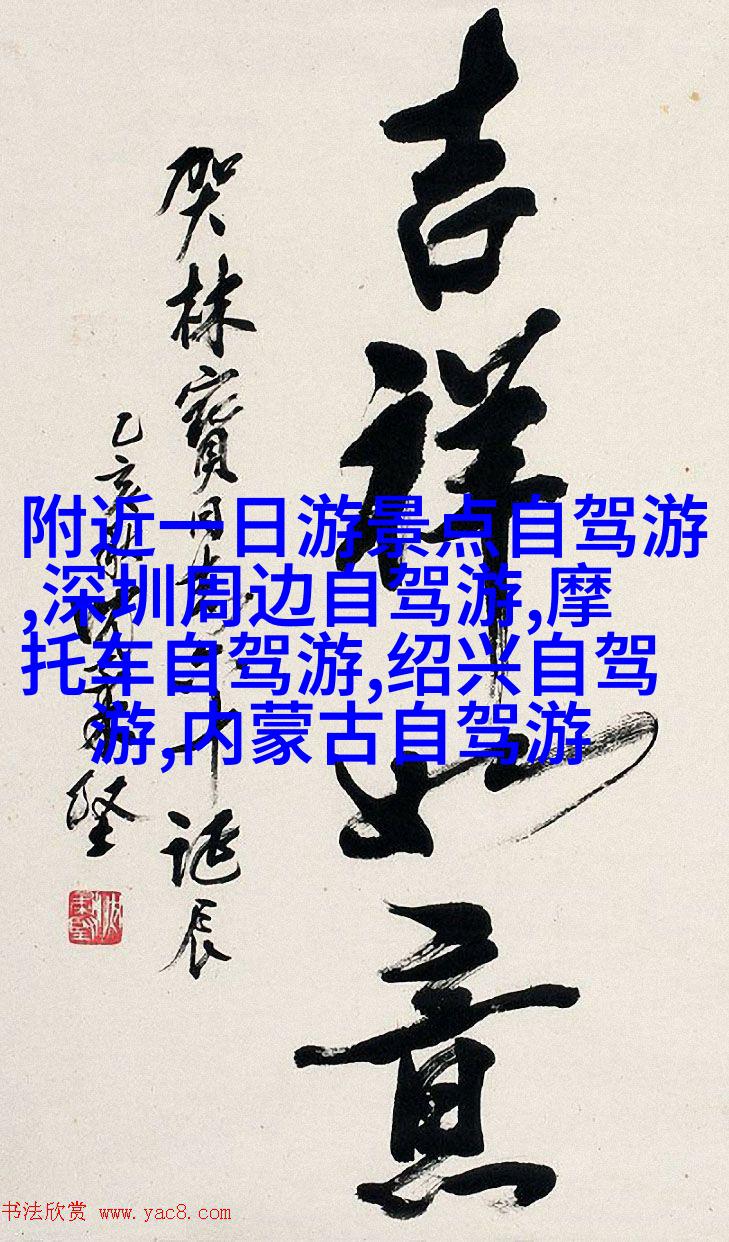 吉祥如意
贺林宝日寿六十诞辰
乙亥
坚
附近一日游景点自驾游
,深圳周边自驾游,摩
托车自驾游,绍兴自驾
游,内蒙古自驾游
书法欣赏 www.yac8.com